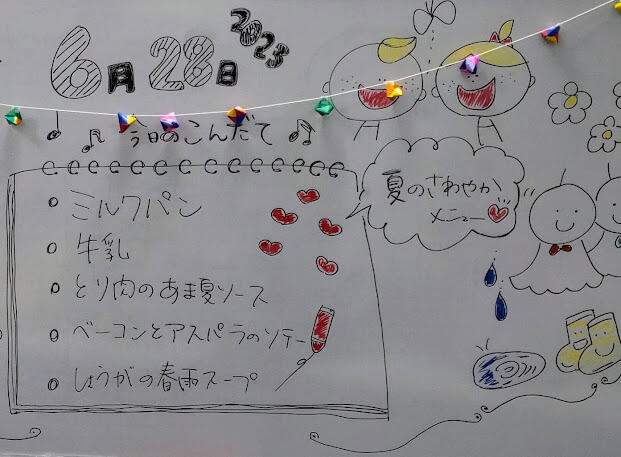 6月28日 2023
今日のこんだて
ミルクパン
牛乳
とり肉のあま夏ソース
ベーコンとアスパラのソテー
しょうがの春雨スープ
夏のさわやか
メニュー